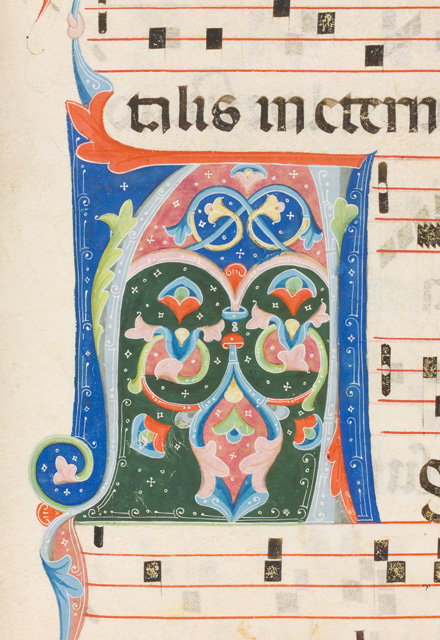 talis in etern
A